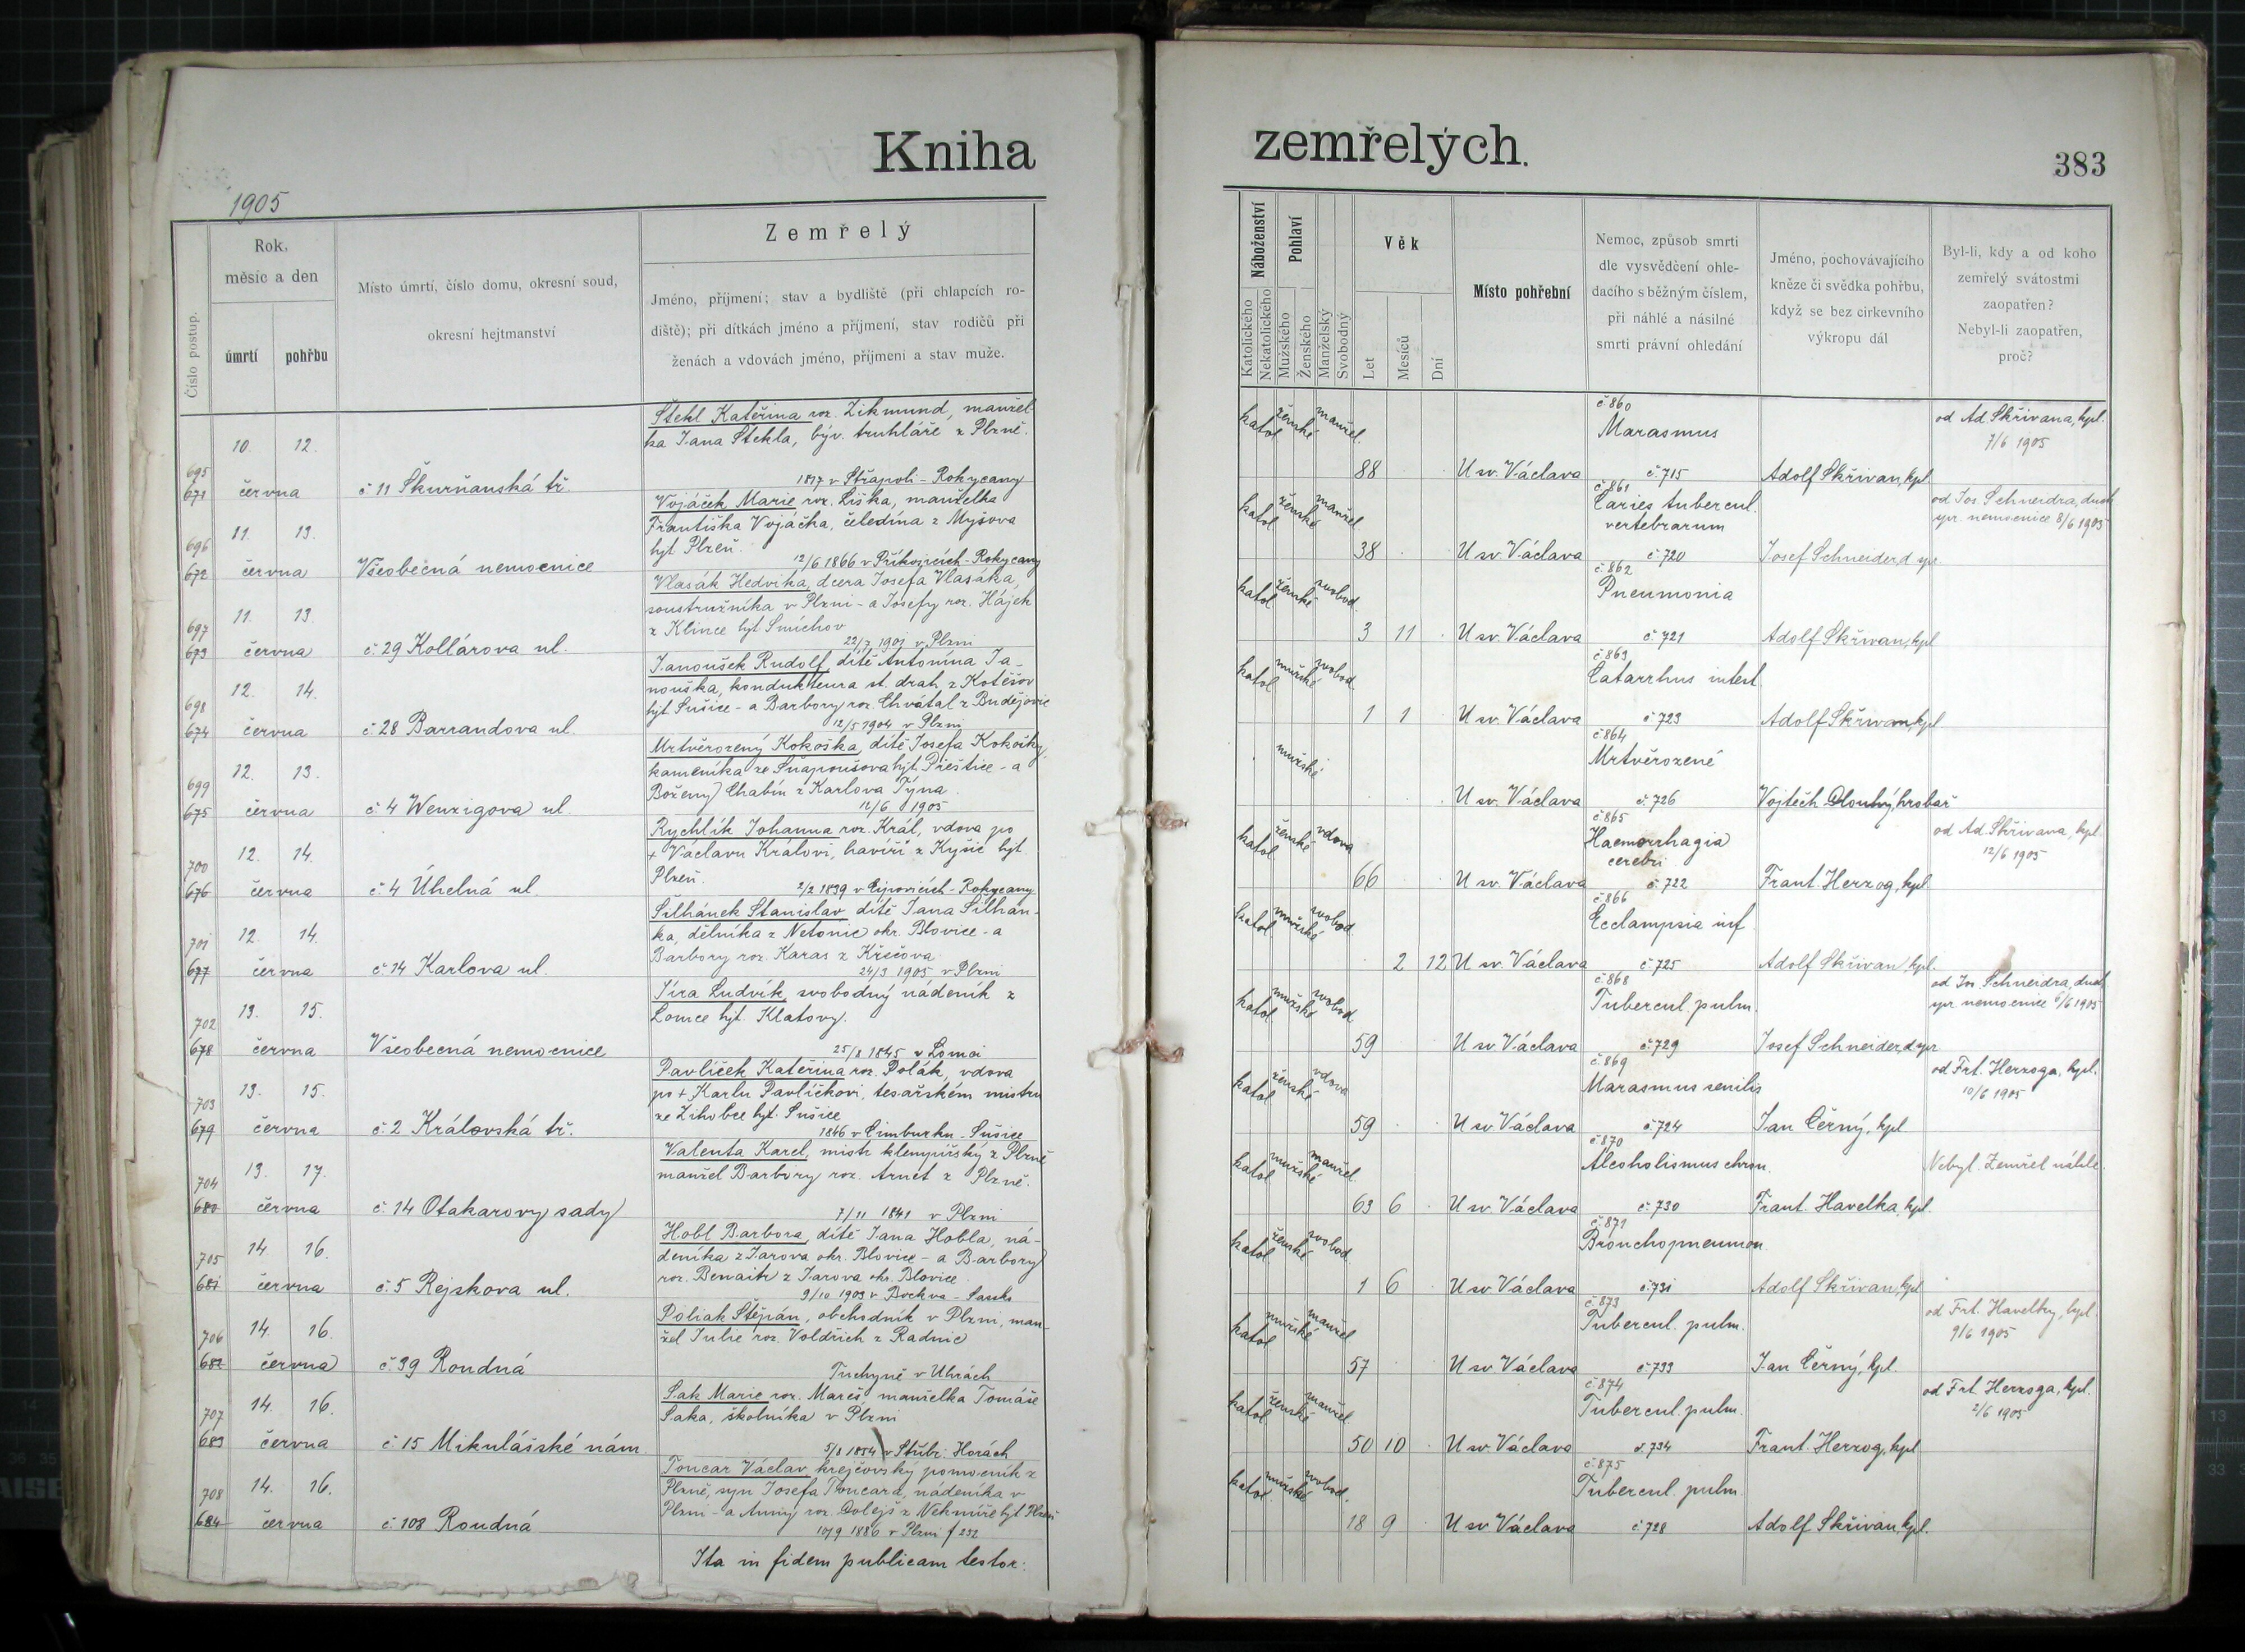 Kniha
1905
Číslo postup.
Rok,
měsíc a den
úmrtí
pohřbu
Místo úmrtí, číslo domu, okresní soud,
okresní hejtmanství
Zemřelý
Jméno, příjmení; stav a bydliště (při chlapcích ro-
diště); při dítkách jméno a příjmení, stav rodičů při
ženách a vdovách jméno, příjmení a stav muže.
695
671
10. 12.
června
č 11 Škurňanská tř.
Štekl Kateřina roz. Zikmund, manžel-
ka Jana Štekla, býv. truhláře z Plzně.
1817 v Střapoli - Rokycany
696
672
11. 13.
června
Všeobecná nemocnice
Vojáček Marie roz. Liška, manželka
Františka Vojáčka, čeledína z Myšova
hjt Plzeň.
12/6 1866 v Příkosicích - Rokycany
697
673
11. 13.
června
č. 29 Kollárova ul.
Vlasák Hedvika, dcera Josefa Vlasáka,
soustružníka v Plzni - a Josefy roz. Hájek
z Klince hjt Smíchov
22/7 1901 v Plzni
698
674
12. 14.
června
č. 28 Barrandova ul.
Janoušek Rudolf, dítě Antonína Ja-
nouška, kondukteura st. drah, z Kotěšov
hjt Sušice - a Barbory roz. Chvátal z Budějovic
12/5 1904 v Plzni
699
675
12. 13.
června
č 4 Wenzigova ul.
Mrtvěrozený Kokoška, dítě Josefa Kokošky,
kameníka ze Snapoušova hjt. Přeštice - a
Boženy Chabín z Karlova Týna.
12/6 1905
700
676
12. 14.
června
č. 4 Úhelná ul.
Rychlík Johanna roz. Král, vdova po
+ Václavu Královi, havíři z Kyšic hjt
Plzeň.
2/2 1839 v Ejpovicích - Rokycany
701
677
12. 14.
června
č 14 Karlova ul.
Silhánek Stanislav dítě Jana Silhán-
ka, dělníka z Netonic okr. Blovice - a
Barbory roz. Karas z Křečova
24/3 1905 v Plzni
702
678
13. 15.
června
Všeobecná nemocnice
Jíra Ludvík, svobodný nádeník z
Lomce hjt. Klatovy.
25/8 1845 v Lomci
703
679
13. 15.
června
č. 2 Královská tř.
Pavlíček Kateřina roz. Polák, vdova
po + Karlu Pavlíčkovi, tesařském mistru
ze Zihobce hjt. Sušice
1846 v Cimburku - Sušice
704
680
13. 17.
června
č. 14 Otakarovy sady
Valenta Karel, mistr klempířský z Plzně
manžel Barbory roz. Arnet z Plzně.
7/11 1841 v Plzni
705
681
14. 16.
června
č. 5 Rejskova ul.
Hobl Barbora, dítě Jana Hobla, ná-
deníka z Jarova okr. Blovice - a Barbory
roz. Benaitr z Jarova okr. Blovice.
9/10 1903 v Bockva - Sasko
706
682
14. 16.
června
č. 39 Roudná
Poliak Štěpán, obchodník v Plzni, man-
žel Julie roz. Voldřich z Radnic
Tuchyně v Uhrách
707
683
14. 16.
června
č. 15 Mikulášské nám.
Sak Marie roz. Mareš, manželka Tomáše
Saka, školníka v Plzni
5/8 1854 v Stříbr. Horách
708
684
14. 16.
června
č. 108 Roudná
Toncar Václav krejčovský pomocník z
Plzně, syn Josefa Toncara, nádeníka v
Plzni - a Anny roz. Dolejš z Nekmíře hjt Plzeň
10/9 1886 v Plzni f 232
Ita in fidem publicam testor:
zemřelých.
383
Náboženství
Katolického
Nekatolického
Pohlaví
Mužského
Ženského
Manželský
Svobodný
Věk
Let
Měsíců
Dní
Místo pohřební
Nemoc, způsob smrti
dle vysvědčení ohle-
dacího s běžným číslem,
při náhlé a násilné
smrti právní ohledání
Jméno, pochovávajícího
kněze či svědka pohřbu,
když se bez církevního
výkropu dál
Byl-li, kdy a od koho
zemřelý svátostmi
zaopatřen?
Nebyl-li zaopatřen,
proč?
katol ženské manžel.
88
U sv. Václava
č. 860
Marasmus
č. 715
Adolf Skřivan, kpl
od Ad. Skřivana, kpl.
7/6 1905
katol ženské manžel
38
U sv. Václava
č. 861
Caries tubercul.
vertebrarum
č. 720
Josef Schneider, d spr
od Jos. Schneidra, duch
spr. nemocnice 8/6 1905
katol ženské svobod.
3 11
U sv. Václava
č. 862
Pneumonia
č. 721
Adolf Skřivan, kpl
katol mužské svobod
1 1
U sv. Václava
č. 863
Catarrhus intest.
č. 723
Adolf Skřivan, kpl
mužské
U sv. Václava
č. 864
Mrtvěrozené
č. 726
Vojtěch Dlouhý, hrobař
katol ženské vdova
66
U sv. Václava
č. 865
Haemorrhagia
cerebri
č. 722
Frant. Herzog, kpl
od Ad. Skřivana, kpl.
12/6 1905
katol mužské svobod
2 12
U sv. Václava
č. 866
Ecclampsia inf.
č. 725
Adolf Skřivan, kpl.
katol mužské svobod
59
U sv. Václava
č. 868
Tubercul. pulm.
č. 729
Josef Schneider, d spr
od Jos. Schneidra, duch
spr. nemocnice 6/6 1905
katol ženské vdova
59
U sv. Václava
č. 869
Marasmus senilis
č. 724
Jan Černý, kpl
od Frt. Herzoga, kpl.
10/6 1905
katol mužské manžel
63 6
U sv. Václava
č. 870
Alcoholismus chron.
č. 730
Frant. Havelka, kpl.
Nebyl. Zemřel náhle.
katol ženské svobod
1 6
U sv. Václava
č. 871
Bronchopneumon
č. 731
Adolf Skřivan, kpl
katol mužské manžel
57
U sv. Václava
č. 873
Tubercul. pulm.
č. 733
Jan Černý, kpl.
od Frt. Havelky, kpl.
9/6 1905
katol ženské manžel
50 10
U sv. Václava
č. 874
Tubercul. pulm.
č. 734
Frant. Herzog, kpl
od Frt. Herzoga, kpl.
2/6 1905
katol. mužské svobod.
18 9
U sv. Václava
č. 875
Tubercul. pulm.
č. 728
Adolf Skřivan, kpl.